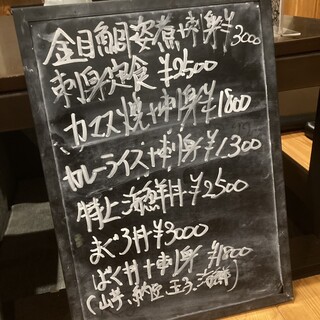 金目鯛姿煮+刺身¥3000
刺身定食 ¥2500
カエス焼+刺身¥1800
カレーライス+刺身¥1300
特上海鮮丼¥2500
まぐろ丼¥3000
ばくだん丼+刺身¥1800
(山芋、納豆、玉子、海鮮)